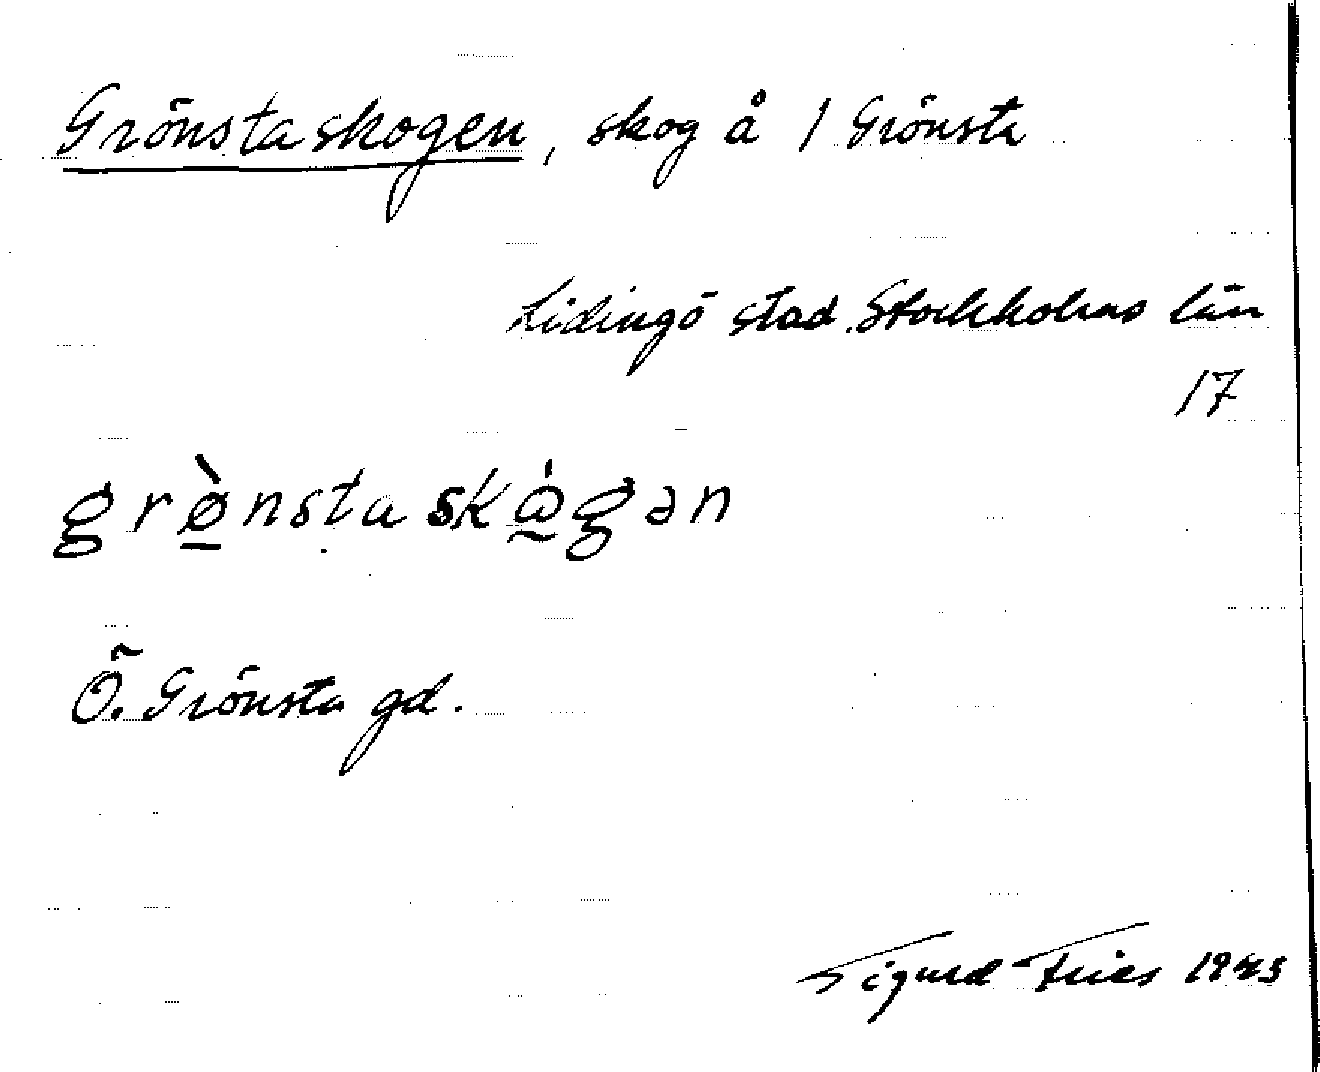 Grönstaskogen, skog å 1 Grönsta
Lidingö stad Stockholms län
17
grø̲̀nstaskɷ̰̀gən
Ö. Grönsta gd.
Sigurd Fries 1945